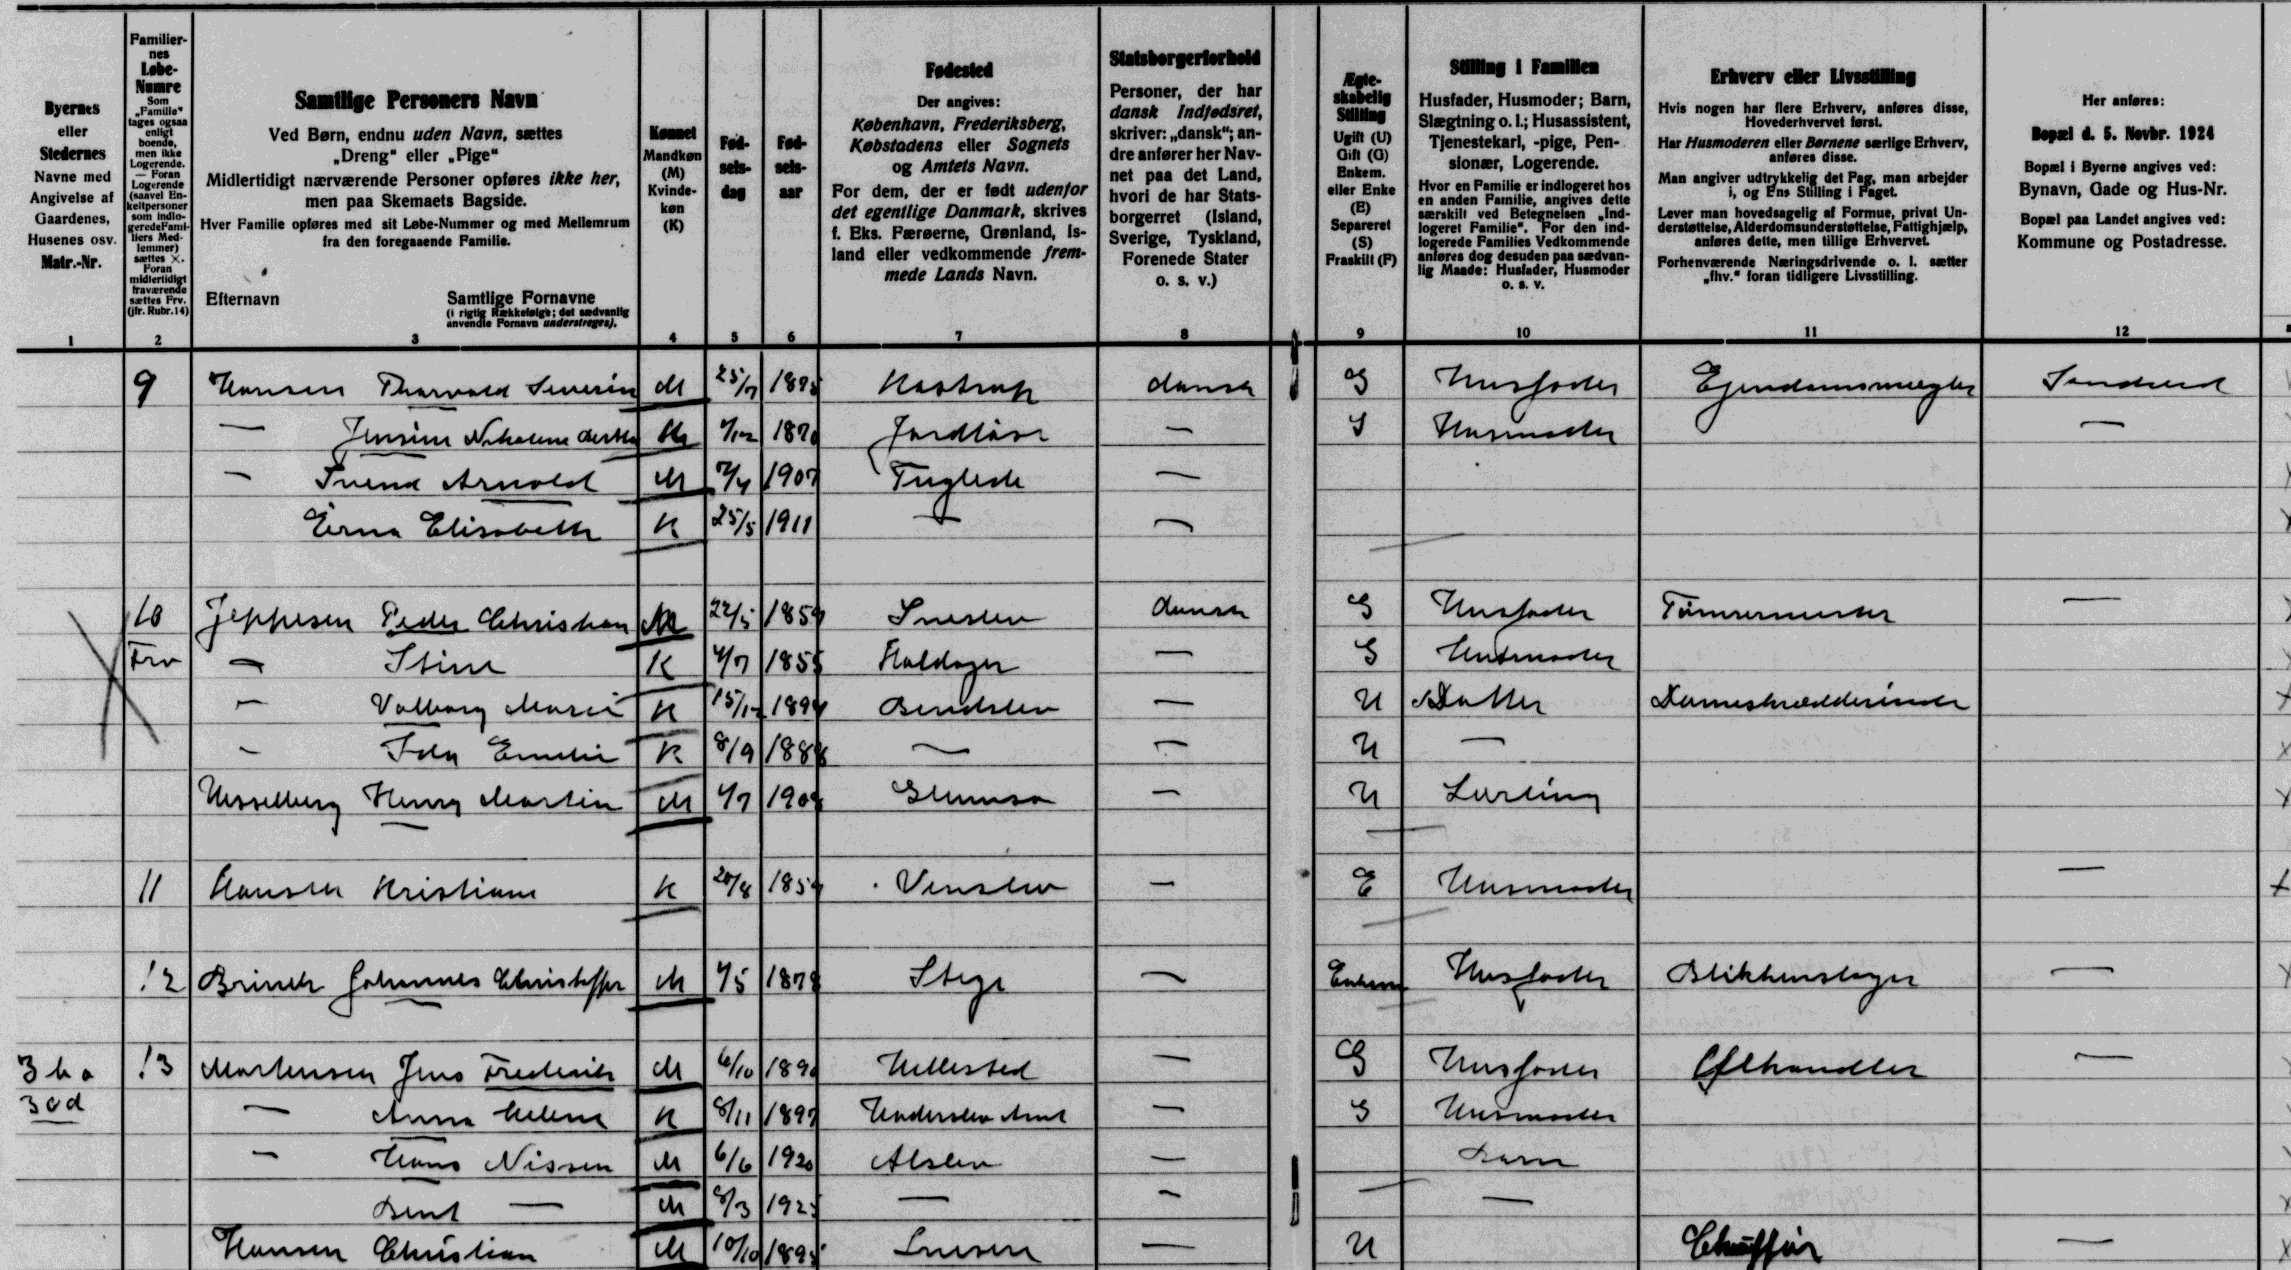 Byernes
eller
Stedernes
Navne med
Angivelse af
Gaardenes,
Husenes osv.
Matr.-Nr.
Familier-
nes
Løbe-
Numre
Som
„Familie"
tages ogsaa
enligt
boende,
men ikke
Logerende.
— Foran
Logerende
(saavel En-
keltpersoner
som indlo-
geredeFami-
liers Med-
lemmer)
sættes ×.
Foran
midlertidigt
fraværende
sættes Frv.
(jfr. Rubr.14)
Samtlige Personers Navn
Ved Børn, endnu uden Navn, sættes
„Dreng" eller „Pige"
Midlertidigt nærværende Personer opføres ikke her,
men paa Skemaets Bagside.
Hver Familie opføres med sit Løbe-Nummer og med Mellemrum
fra den foregaaende Familie.
Efternavn
Samtlige Fornavne
(i rigtig Rækkefølge; det sædvanlig
anvendte Fornavn understreges).
Kønnet
Mandkøn
(M)
Kvinde-
køn
(K)
Fød-
sels-
dag
Fød-
sels-
aar
Fødested
Der angives:
København, Frederiksberg,
Købstadens eller Sognets
og Amtets Navn.
For dem, der er født udenfor
det egentlige Danmark, skrives
f. Eks. Færøerne, Grønland, Is-
land eller vedkommende frem-
mede Lands Navn.
Statsborgerforhold
Personer, der har
dansk Indfødsret,
skriver: „dansk"; an-
dre anfører her Nav-
net paa det Land,
hvori de har Stats-
borgerret (Island,
Sverige, Tyskland,
Forenede Stater
o. s. v.)
Ægte-
skabelig
Stilling
Ugift (U)
Gift (G)
Enkem.
eller Enke
(E)
Separeret
(S)
Fraskilt (F)
Stilling i Familien
Husfader, Husmoder; Barn,
Slægtning o. l.; Husassistent,
Tjenestekarl, -pige, Pen-
sionær, Logerende.
Hvor en Familie er indlogeret hos
en anden Familie, angives dette
særskilt ved Betegnelsen „Ind-
logeret Familie". For den ind-
logerede Families Vedkommende
anføres dog desuden paa sædvan-
lig Maade: Husfader, Husmoder
o. s. v.
Erhverv eller Livsstilling
Hvis nogen har flere Erhverv, anføres disse,
Hovederhvervet først.
Har Husmoderen eller Børnene særlige Erhverv,
anføres disse.
Man angiver udtrykkelig det Fag, man arbejder
i, og Ens Stilling i Faget.
Lever man hovedsagelig af Formue, privat Un-
derstøttelse, Alderdomsunderstøttelse, Fattighjælp,
anføres dette, men tillige Erhvervet.
Forhenværende Næringsdrivende o. l. sætter
„fhv." foran tidligere Livsstilling.
Her anføres:
Bopæl d. 5. Novbr. 1924
Bopæl i Byerne angives ved:
Bynavn, Gade og Hus-Nr.
Bopæl paa Landet angives ved:
Kommune og Postadresse.
1 2 3 4 5 6 7 8 9 10 11 12
9 Hansen Thorvald Severin M 25/7 1875 Kastrup dansk G Husfader Ejendomsmægler
— Jensine Nikoline K 1870 Jordløse — G Husmoder —
— Svend Arnold M 1907 Fuglede —
Erna Elisabeth K 25/5 1911 — —
10 Jeppesen Peder Christian M 22/5 1859 Sneslev dansk G Husfader Tømrermester —
Frv — Stine K 1855 Haldager — G Husmoder
— Valborg Marie K 15/12 1894 Bendslev — U Datter Dameskrædderinde
— Ida Emilie K 8/9 1888 — — U —
Hesselberg Henry Martin M 1908 Glumsø — U Lærling
11 Hansen Kristiane K 20/8 1859 Venslev — E Husmoder —
12 Brinch Johannes Christoffer M 1878 Stege — Enkem Husfader Blikkenslager —
3 ha 13 Mortensen Jens Frederik M 6/10 1890 Hellested — G Husfader Ølhandler —
30d — Anna Helene K 8/11 1897 Haderslev Amt — G Husmoder
— Hans Nissen M 6/6 1920 Alslev — Barn
Bent — M 8/3 1925 — — —
Hansen Christian M 10/10 1895 — U Chauffør —